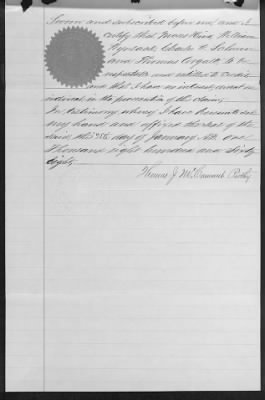 Sworn and subscribed before me, and I
certify that William
Charles
and Thomas to be
respectable and entitled to credit
and that I have no interest, direct or
indirect, in the prosecution of this claim,
In testimony whereof I have hereunto set
my hand and affixed the seal of the
said, this day of January A.D. one
Thousand eight hundred and sixty
eight.
Thomas J.